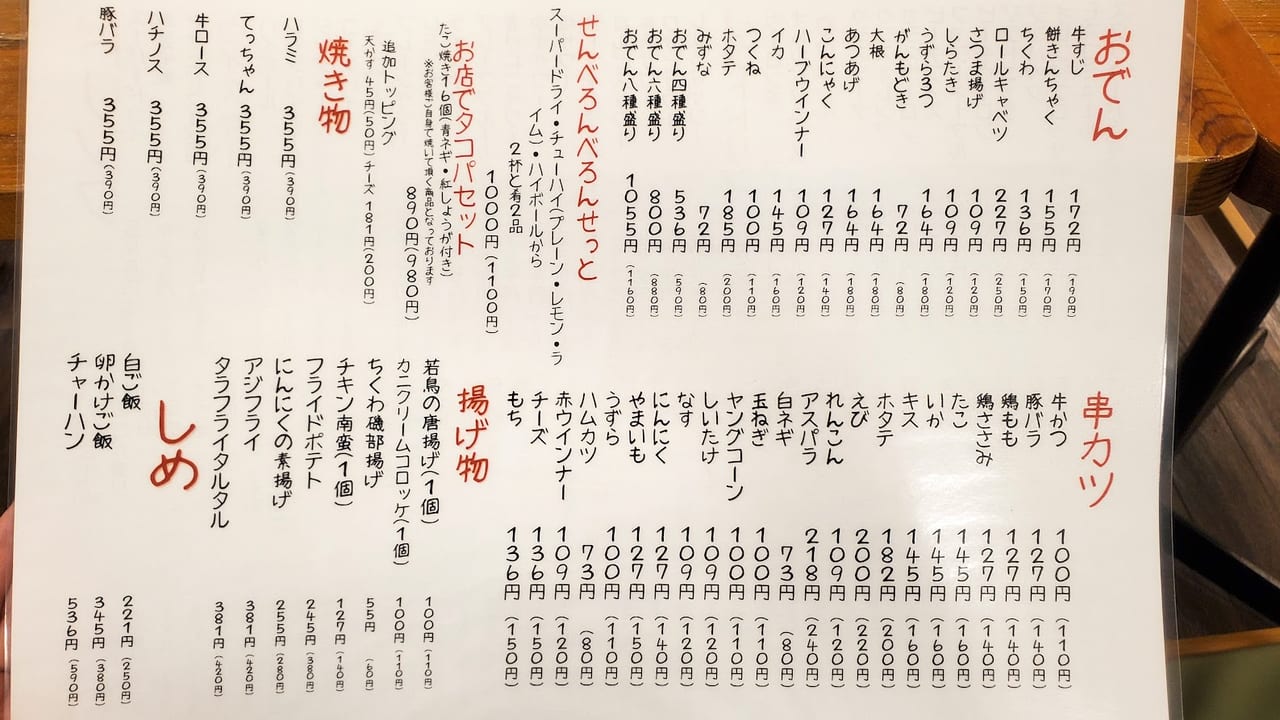 おでん
牛すじ 172円(190円)
餅きんちゃく 155円(170円)
ちくわ 136円(150円)
ロールキャベツ 227円(250円)
さつま揚げ 109円(120円)
しらたき 109円(120円)
うずら3つ 164円(180円)
がんもどき 72円(80円)
大根 164円(180円)
あつあげ 164円(180円)
こんにゃく 127円(140円)
ハーブウインナー 109円(120円)
イカ 145円(160円)
つくね 100円(110円)
ホタテ 185円(200円)
みずな 72円(80円)
おでん四種盛り 536円(590円)
おでん六種盛り 800円(880円)
おでん八種盛り 1055円(1160円)
せんべろんべろんせっと
スーパードライ・チューハイ(プレーン・レモン・ラ
イム)・ハイボールから
2杯と肴2品
1000円(1100円)
お店でタコパセット
たこ焼き16個(青ネギ・紅しょうが付き)
※お客様ご自身で焼いて頂く商品となっております
890円(980円)
追加トッピング
天かす 45円(50円) チーズ 181円(200円)
焼き物
ハラミ 355円(390円)
てっちゃん 355円(390円)
牛ロース 355円(390円)
ハチノス 355円(390円)
豚バラ 355円(390円)
串カツ
牛かつ 100円(110円)
豚バラ 127円(140円)
鶏もも 127円(140円)
鶏ささみ 127円(140円)
たこ 145円(160円)
いか 145円(160円)
キス 145円(160円)
ホタテ 182円(200円)
えび 200円(220円)
れんこん 109円(120円)
アスパラ 218円(240円)
白ネギ 73円(80円)
玉ねぎ 100円(110円)
ヤングコーン 100円(110円)
しいたけ 109円(120円)
なす 109円(120円)
にんにく 127円(140円)
やまいも 127円(150円)
うずら 100円(110円)
ハムカツ 73円(80円)
赤ウインナー 109円(120円)
チーズ 136円(150円)
もち 136円(150円)
揚げ物
若鳥の唐揚げ(1個) 100円(110円)
カニクリームコロッケ(1個) 100円(110円)
ちくわ磯部揚げ 55円(60円)
チキン南蛮(1個) 127円(140円)
フライドポテト 245円(380円)
にんにくの素揚げ 255円(280円)
アジフライ 381円(420円)
タラフライタルタル 381円(420円)
しめ
白ご飯 221円(250円)
卵かけご飯 345円(380円)
チャーハン 536円(590円)